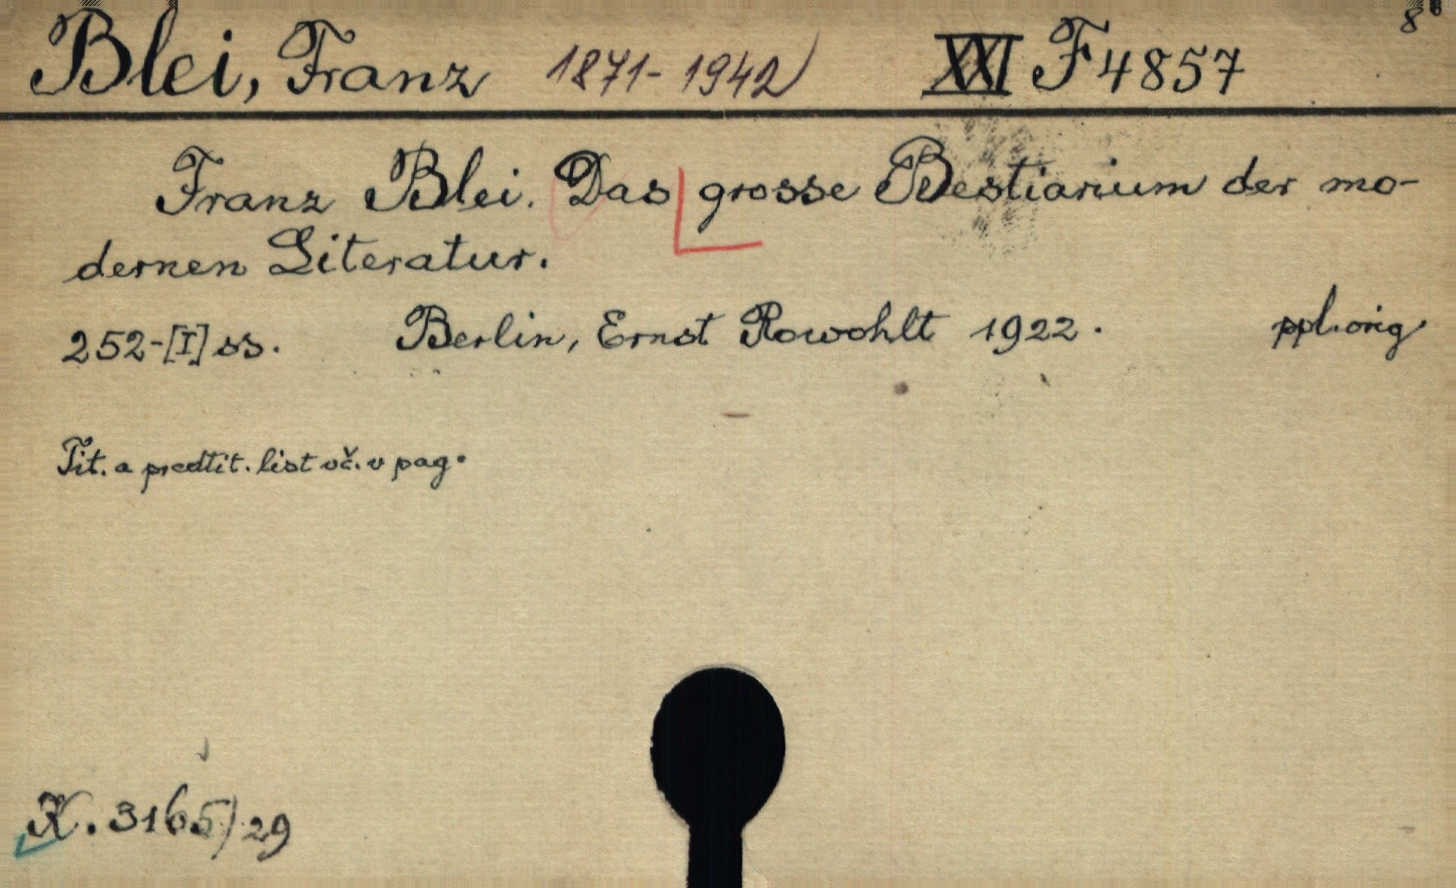 8°
Blei, Franz 1871-1942 XXI F 4857
Franz Blei. Das grosse Bestiarium der mo-
dernen Literatur.
252-[I] ss. Berlin, Ernst Rowohlt 1922. ppl. orig
Tit. a predtit. list vč. v pag.
K. 3165/29